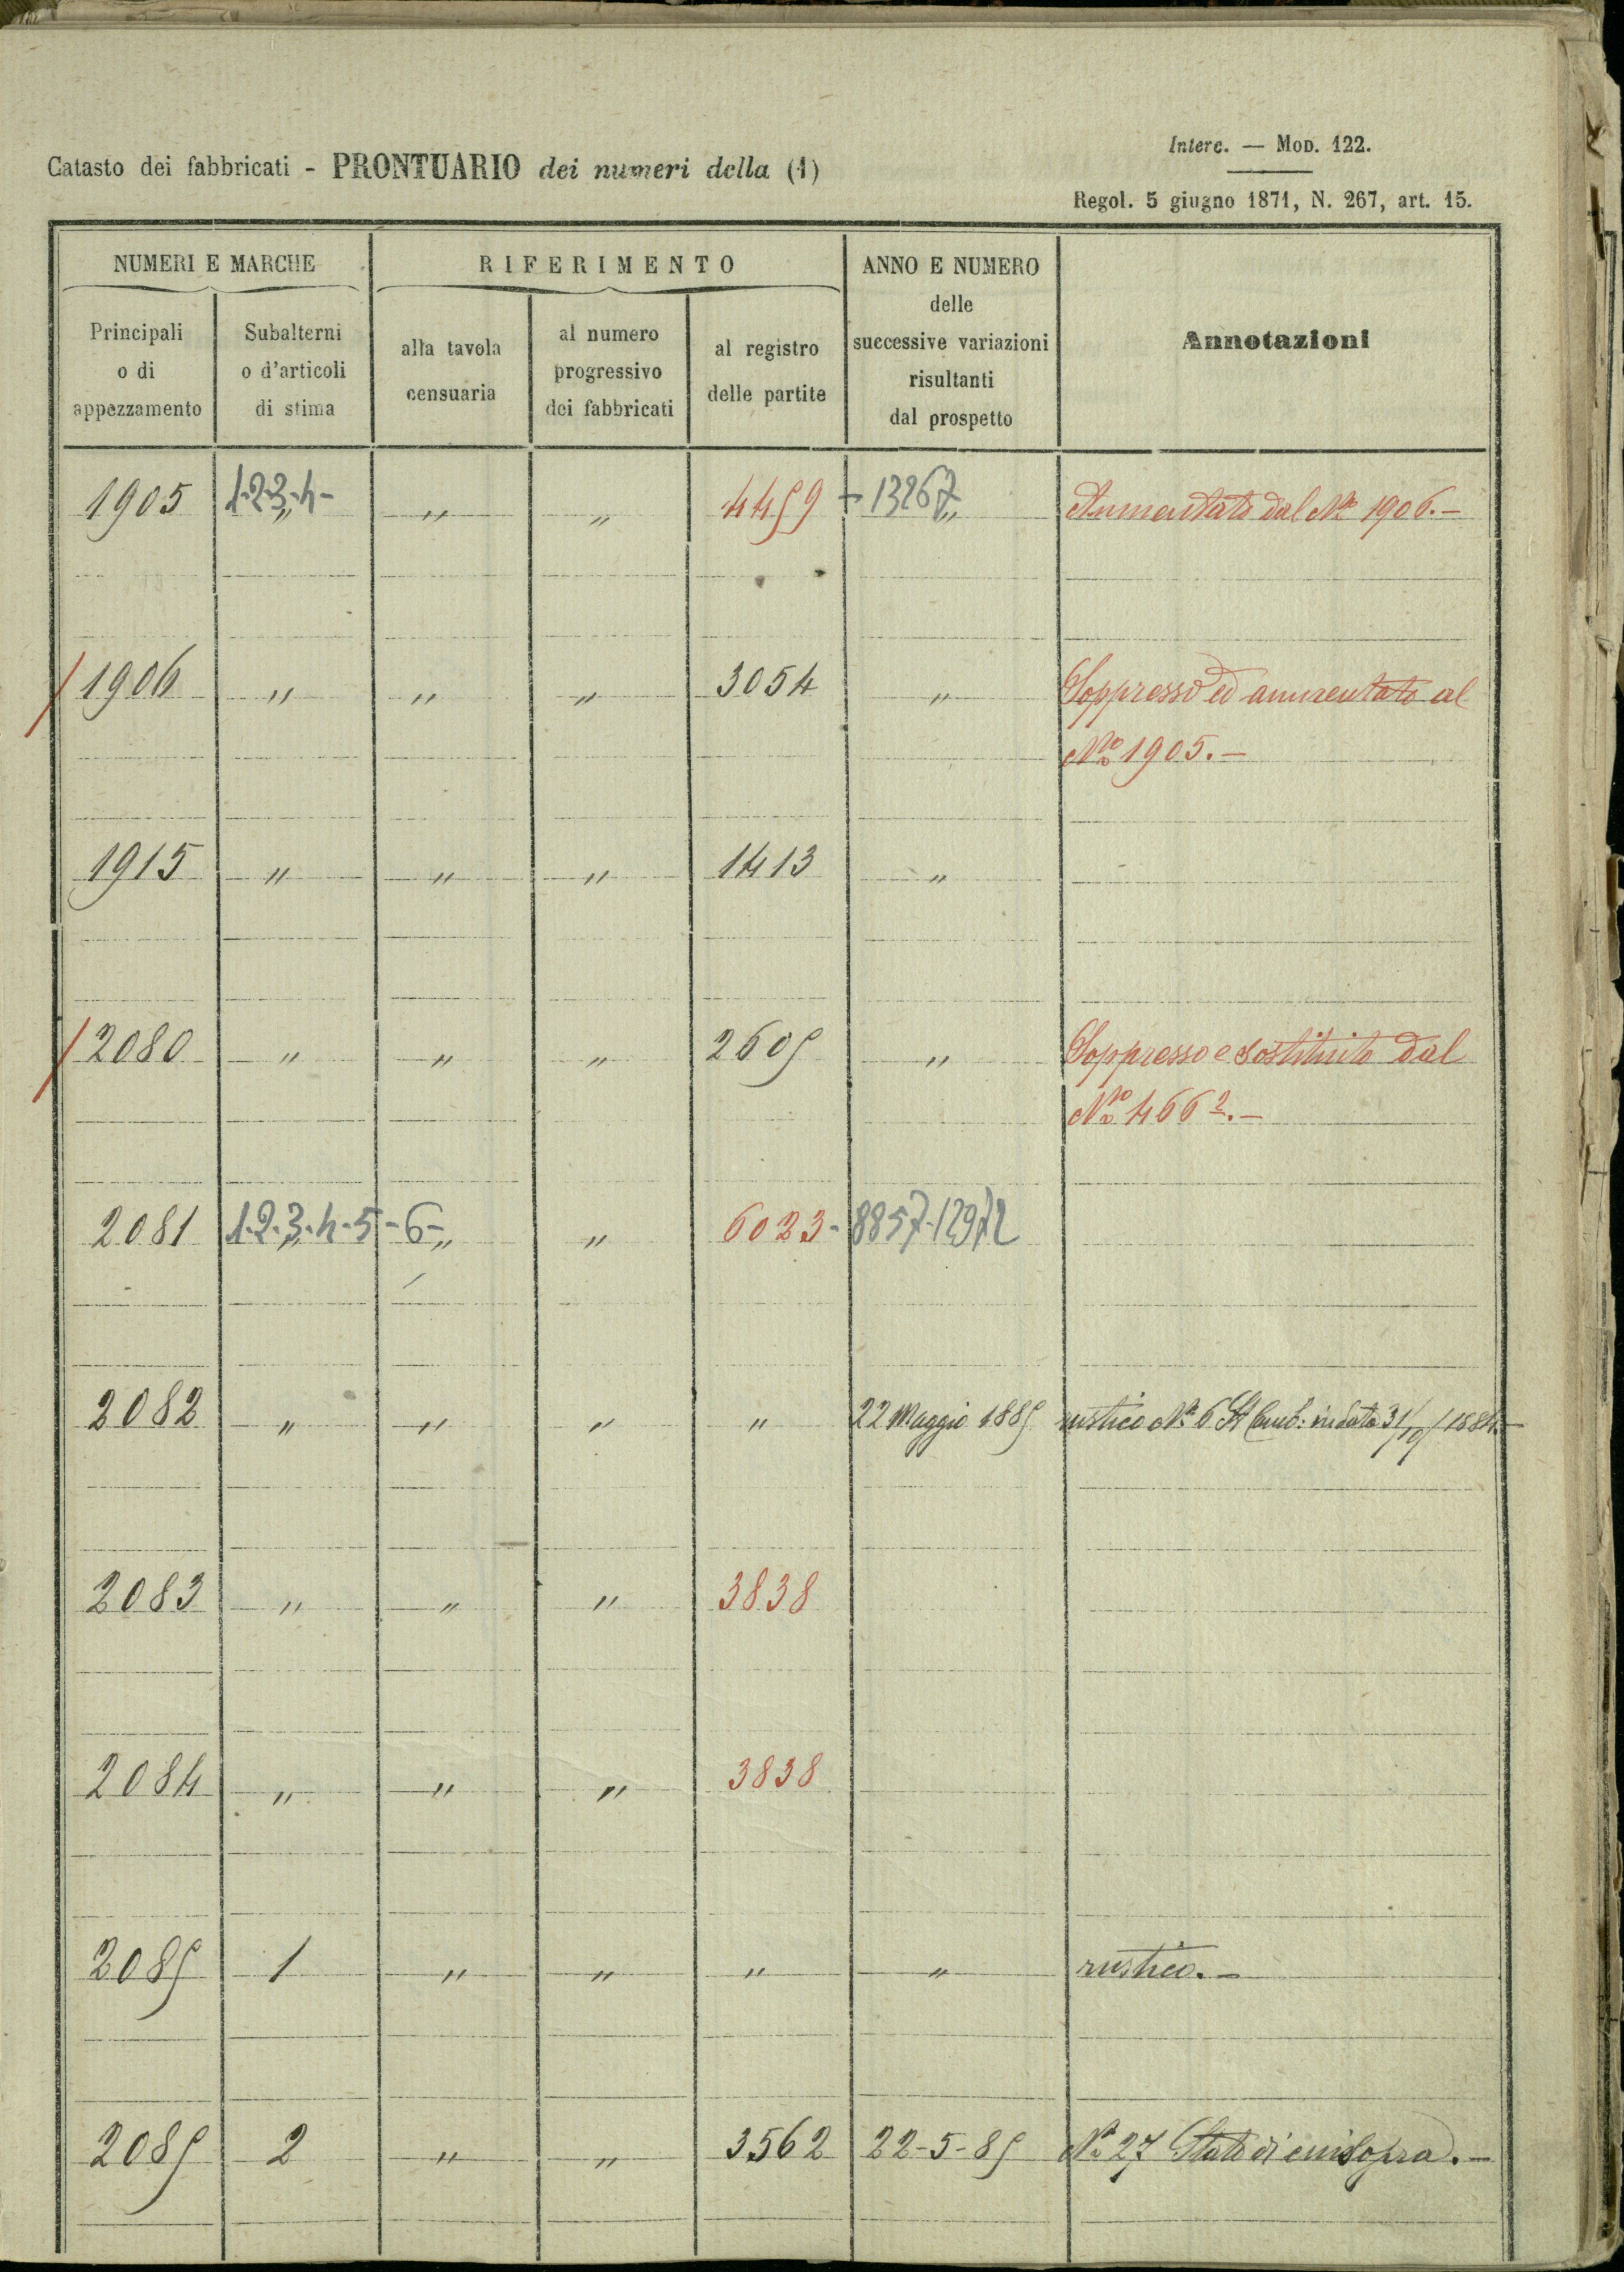 Interc. — Mod. 122.
Catasto dei fabbricati - PRONTUARIO dei numeri della (1)
Regol. 5 giugno 1871, N. 267, art. 15.
NUMERI E MARCHE
RIFERIMENTO
ANNO E NUMERO
delle
successive variazioni
risultanti
dal prospetto
Annotazioni
Principali
o di
appezzamento
Subalterni
o d'articoli
di stima
alla tavola
censuaria
al numero
progressivo
dei fabbricati
al registro
delle partite
1905 1-2-3-4- „ „ „ 4459 + 13267 „ Aumentato dal No 1906.-
1906 „ „ „ 3054 „ Soppresso ed aumentato al
No 1905.-
1915 „ „ „ 1413 „
2080 „ „ „ 2605 „ Soppresso e sostituito dal
No 4662.-
2081 1-2-3-4-5-6- „ „ „ 6023- 8857-12972
2082 „ „ „ „ 22 Maggio 1885 rustico No 6 in data 31/10/1884.-
2083 „ „ „ 3838
2084 „ „ „ 3838
2085 1 „ „ „ „ rustico.-
2085 2 „ „ 3562 22-5-85 No 27 Stato di cui sopra.-